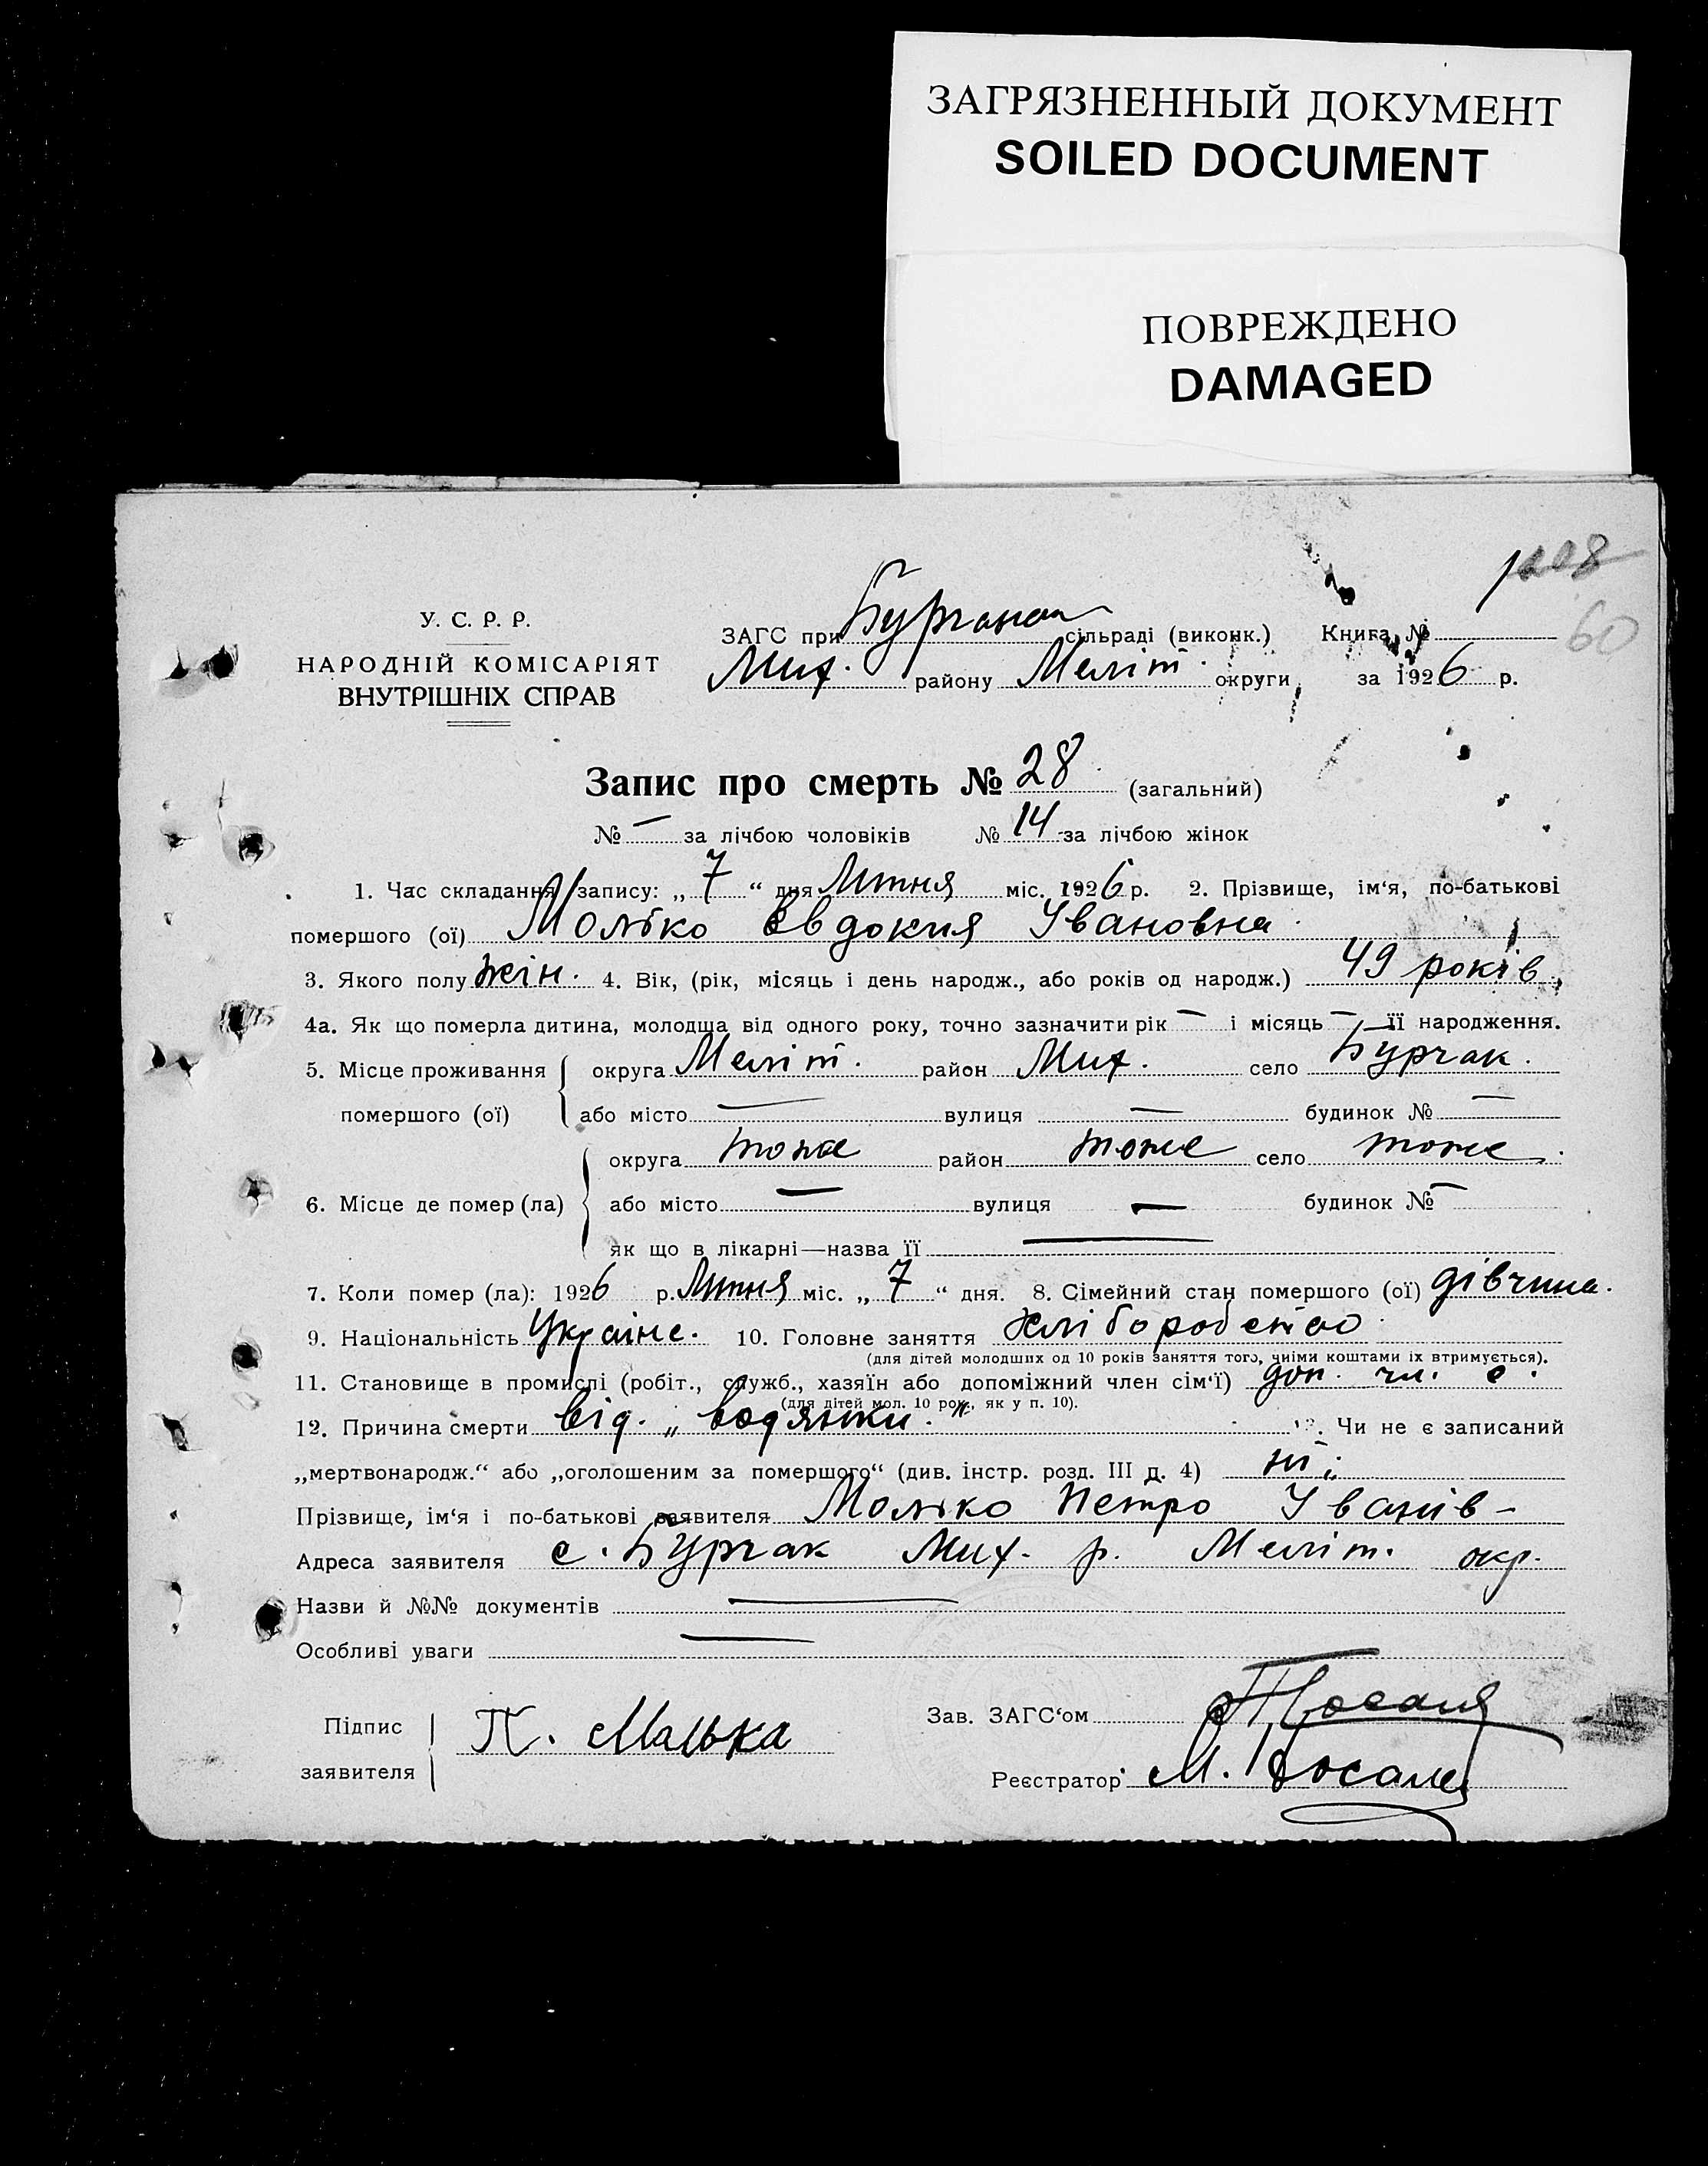 ЗАГРЯЗНЕННЫЙ ДОКУМЕНТ
SOILED DOCUMENT
ПОВРЕЖДЕНО
DAMAGED
60
У. С. Р. Р.
НАРОДНІЙ КОМІСАРІЯТ
ВНУТРІШНІХ СПРАВ
ЗАГС при сільраді (виконк.) Книга №
Мих. району Меліт. округи, за 1926 р.
Запис про смерть № 28 (загальний)
№ — за лічбою чоловіків № 14 за лічбою жінок
1. Час складання запису: „ 7 “ дня Липня міс. 1926 р. 2. Прізвище, ім‘я, по-батькові
помершого (ої) Молько Євдокия Івановна
3. Якого полу жін. 4. Вік, (рік, місяць і день народж., або років од народж.) 49 років
4а. Як що померла дитина, молодша від одного року, точно зазначити рік — і місяць — її народження.
5. Місце проживання округа Меліт. район Мих. село Бурчак.
помершого (ої) або місто — вулиця — будинок № —
округа тоже район тоже село тоже
6. Місце де помер (ла) або місто — вулиця — будинок № —
як що в лікарні—назва її —
7. Коли помер (ла): 1926 р. Липня міс. „ 7 “ дня. 8. Сімейний стан помершого (ої) дівчина.
9. Національність Україне. 10. Головне заняття Хліборобство
(для дітей молодших од 10 років заняття того, чиїми коштами їх втримується).
11. Становище в промислі (робіт., служб., хазяїн або допоміжний член сім‘ї) доп. чл. с.
(для дітей мол. 10 рок., як у п. 10).
12. Причина смерти від. „ водянки. “ 13. Чи не є записаний
„мертвонародж.“ або „оголошеним за помершого“ (див. інстр. розд. III д. 4) ні
Прізвище, ім‘я і по-батькові заявителя Молько Петро Іванів-
Адреса заявителя с. Бурчак Мих. р. Меліт. окр.
Назви й №№ документів —
Особливі уваги —
Підпис заявителя П. Малька
Зав. ЗАГС‘ом
Реєстратор М.